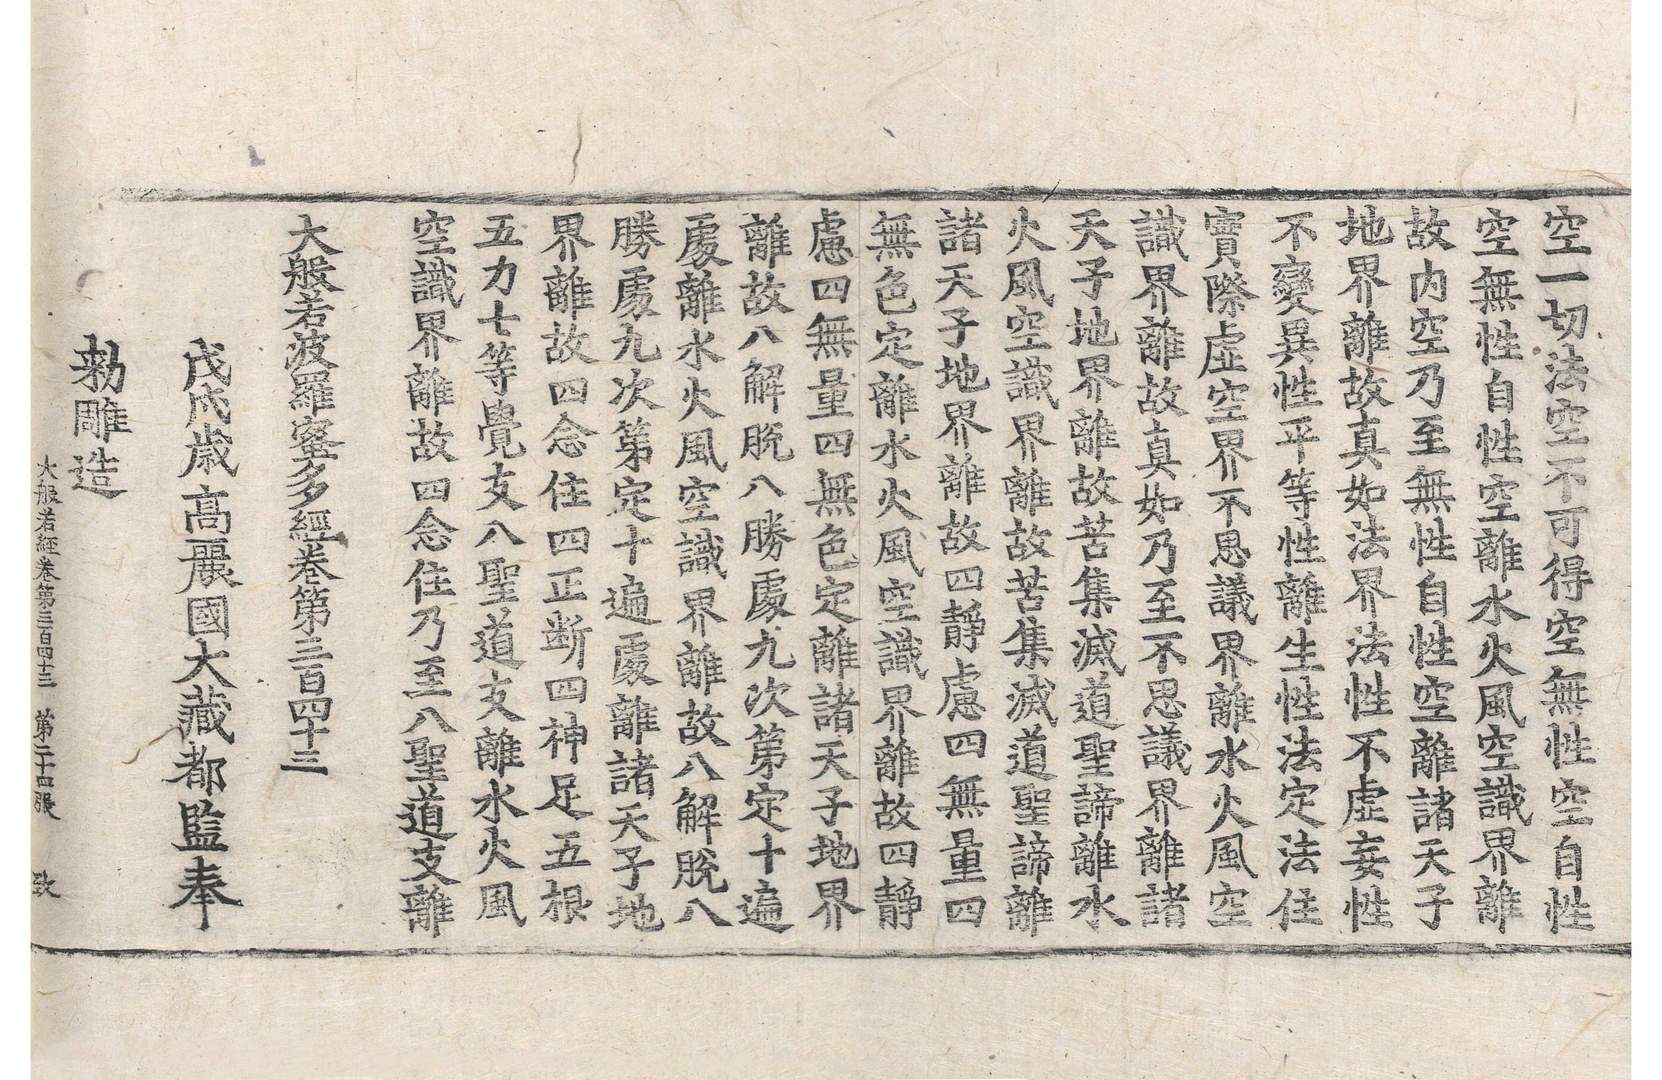 空一切法空不可得空無性空自性
空無性自性空離水火風空識界離
故内空乃至無性自性空離諸天子
地界離故真如法界法性不虛妄性
不變異性平等性離生性法定法住
實際虛空界不思議界離水火風空
識界離故真如乃至不思議界離諸
天子地界離故苦集滅道聖諦離水
火風空識界離故苦集滅道聖諦離
諸天子地界離故四靜慮四無量四
無色定離水火風空識界離故四靜
慮四無量四無色定離諸天子地界
離故八解脫八勝處九次第定十遍
處離水火風空識界離故八解脫八
勝處九次第定十遍處離諸天子地
界離故四念住四正断四神足五根
五力七等覺支八聖道支離水火風
空識界離故四念住乃至八聖道支離
大般若波羅蜜多經卷第三百四十三
戊戌歲高麗國大藏都監奉
勑雕造
大般若經卷第三百四十三 第二十四張 致